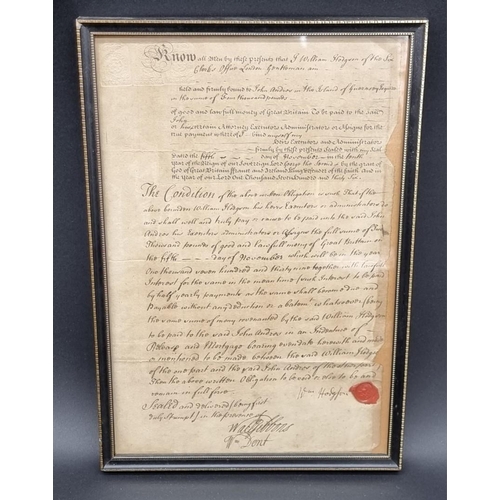 Know all Men by these presents that I William Hodgson of the Six
Clerks Office London Gentleman am
held and firmly bound to John Andros in the Island of Guernsey Esquire
in the sume of Two thousand pounds
of good and lawfull money of Great Britain To be paid to the said
John
or his certain Attorney Executors Administrators or Assigns for the
true payment whereof I bind myself my
Heirs Executors and Administrators
firmly by these presents Sealed with my Seal
Dated the fifth day of November in the tenth
Year of the Reign of our Sovereign Lord George the Second by the grace of
God of Great Britain France and Ireland King Defender of the Faith and in
the Year of our Lord One Thousand Seven Hundred and thirty Six
The Condition of the above written Obligation is such That if the
above bounden William Hodgson his heirs Executors or administrators do
and shall well and truly pay or cause to be paid unto the said John
Andros his Executors administrators or Assigns the full sume of
Thousand pounds of good and lawfull money of Great Britain on
the fifth day of November which will be in the year
One thousand seven hundred and thirty nine together with lawfull
Interest for the same in the mean time such Interest to be paid
by half yearly payments as the same shall become due and
payable without any deduction or abatem^t whatsoever being
the same sume of money covenanted by the said William Hodgson
to be paid to the said John Andros in an Indenture of
Release and Mortgage bearing even date herewith and made
or mentioned to be made between the said William Hodgson
of the one part and the said John Andros of the other part
Then the above written Obligation to be void or else to be and
remain in full force
W^m Hodgson
Sealed and delivered (being first
duly stampt) in the presence of
Wal Gibbons
W^m Dent